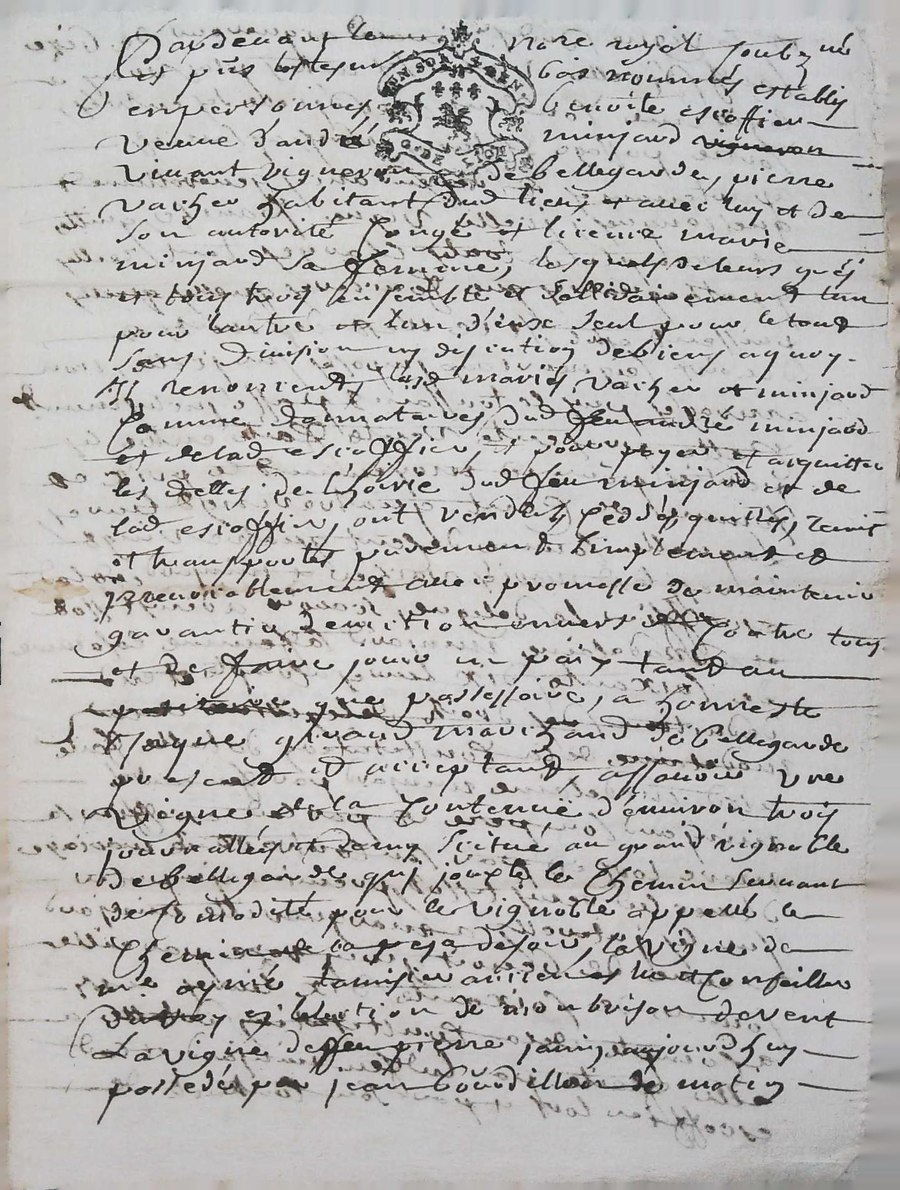 Pardevant le notre royal soubzné
et pnts les tesm bas nommés establis
en personnes benoite escoffier
veuve d'andré minjard vigneron
vivant vigneron de bellegarde, pierre
vacher habitant dud lieu, et avec luy et de
son autorité congé et licence marie
minjard sa femme, lesquels de leurs grés
et tous trois ensemble et sollidairement l'un
pour l'autre et l'un d'eux seul pour le tout
sans division ny discution de biens a quoy
ils renoncent, lesd mariés vacher et minjard
comme donnataires dud feu andré minjard
et de lad escoffier, et pour payer et acquitter
les dettes de l'hoirie dud feu minjard et de
lad escoffier, ont vendus, ceddés, quittés, remis
et transportés purement simplement et
irrevocablement avec promesse de maintenir
garantir d'eviction envers et contre tous
et de faire jouir en paix tant au
que possessoire, a honneste
Jaque giraud marchand de bellegarde
present et acceptant, assavoir une
vigne de la contenue d'environ trois
journallées et demy scitué au grand vignoble
de bellegarde qui jouxte le chemin servant
de comodité pour le vignoble appellé le
chemin de soir, la vigne de
me aymé tamisier ancien esleu et conseiller
en l'election de monbrison de vent
La vigne de feu pierre jamy aujourd'huy
possedés par jean bourdillon de matin